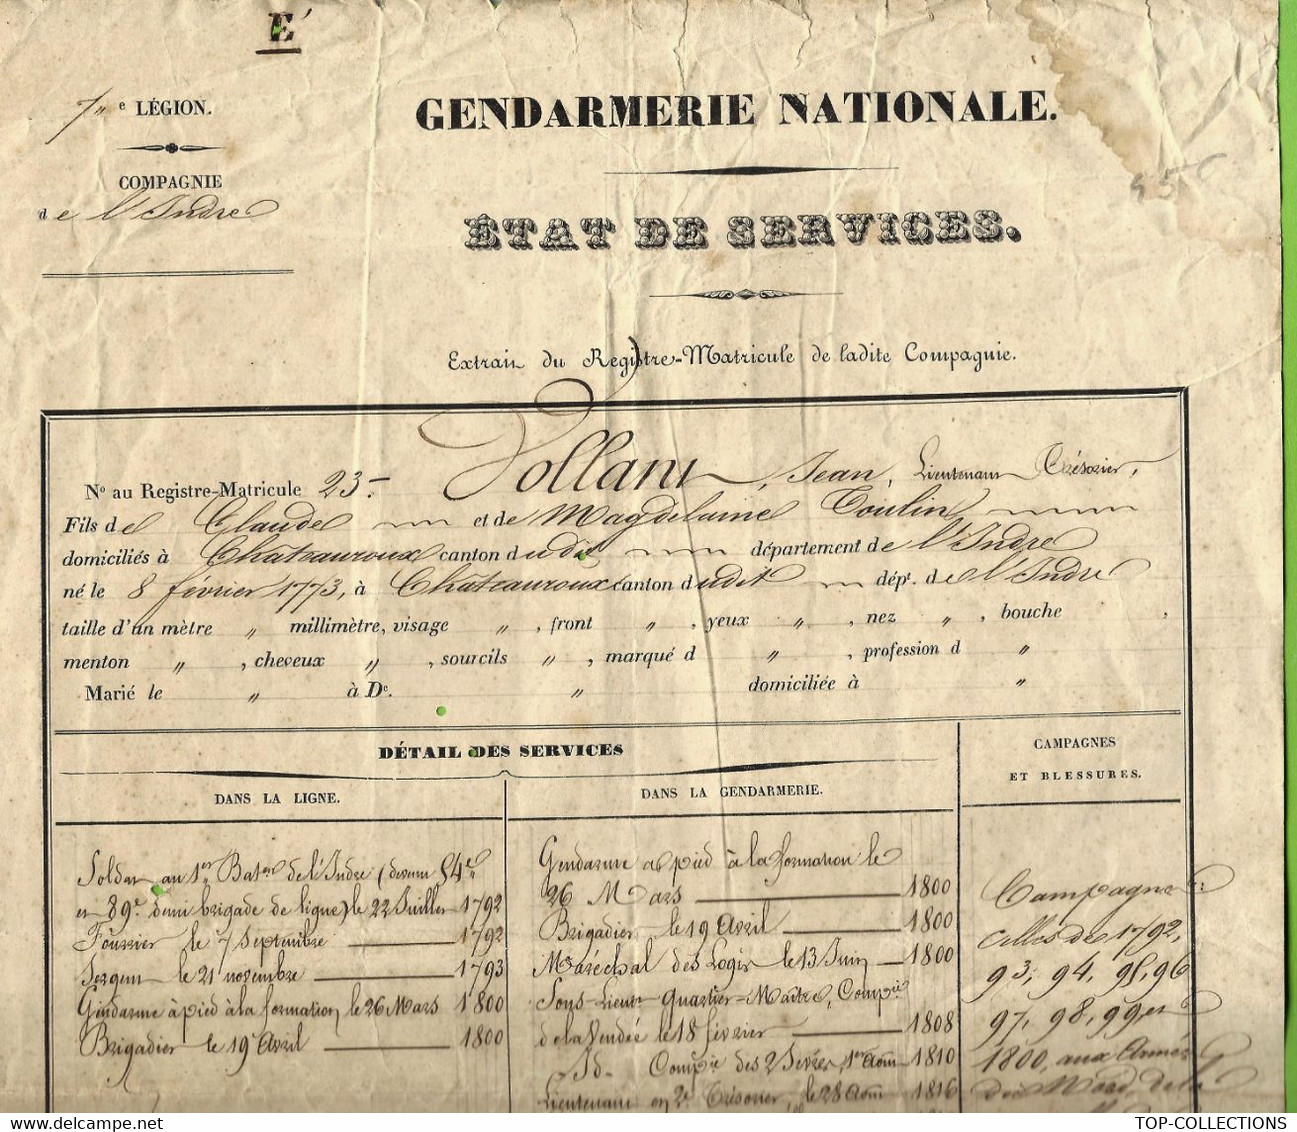 E
7e LÉGION.
COMPAGNIE
de l'Indre
GENDARMERIE NATIONALE.
ÉTAT DE SERVICES.
Extrait du Registre-Matricule de ladite Compagnie.
No au Registre-Matricule 23. Vollant, Jean, Lieutenant Trésorier,
Fils de Claude et de Magdelaine Toulin
domiciliés à Châteauroux canton dudit département de l'Indre
né le 8 février 1773, à Châteauroux canton dudit dépt. de l'Indre
taille d'un mètre " millimètre, visage " , front " , yeux " , nez " , bouche ,
menton " , cheveux " , sourcils " , marqué d " , profession d "
Marié le " à De. " domiciliée à "
DÉTAIL DES SERVICES
DANS LA LIGNE.
Soldat au 1er Baton de l'Indre (devenu 54e
et 89e demi brigade de ligne) le 22 Juillet 1792
Fourrier le 7 Septembre 1792
Sergent le 21 novembre 1793
Gendarme à pied à la formation le 26 Mars 1800
Brigadier le 19 Avril 1800
DANS LA GENDARMERIE.
Gendarme à pied à la formation le
26 Mars 1800
Brigadier le 19 Avril 1800
Maréchal des Logis le 13 Juin 1800
Sous-Lieutt Quartier-Maître, Compie
de la Vendée le 18 février 1808
Id. Compie des 2 Sèvres, 1er Aout 1810
Lieutenant en 2e Trésorier, le 28 Aout 1816
CAMPAGNES
ET BLESSURES.
Campagnes:
Celles de 1792,
93, 94, 95, 96
97, 98, 99 et
1800, aux Armées
du Nord, de la
TOP-COLLECTIONS